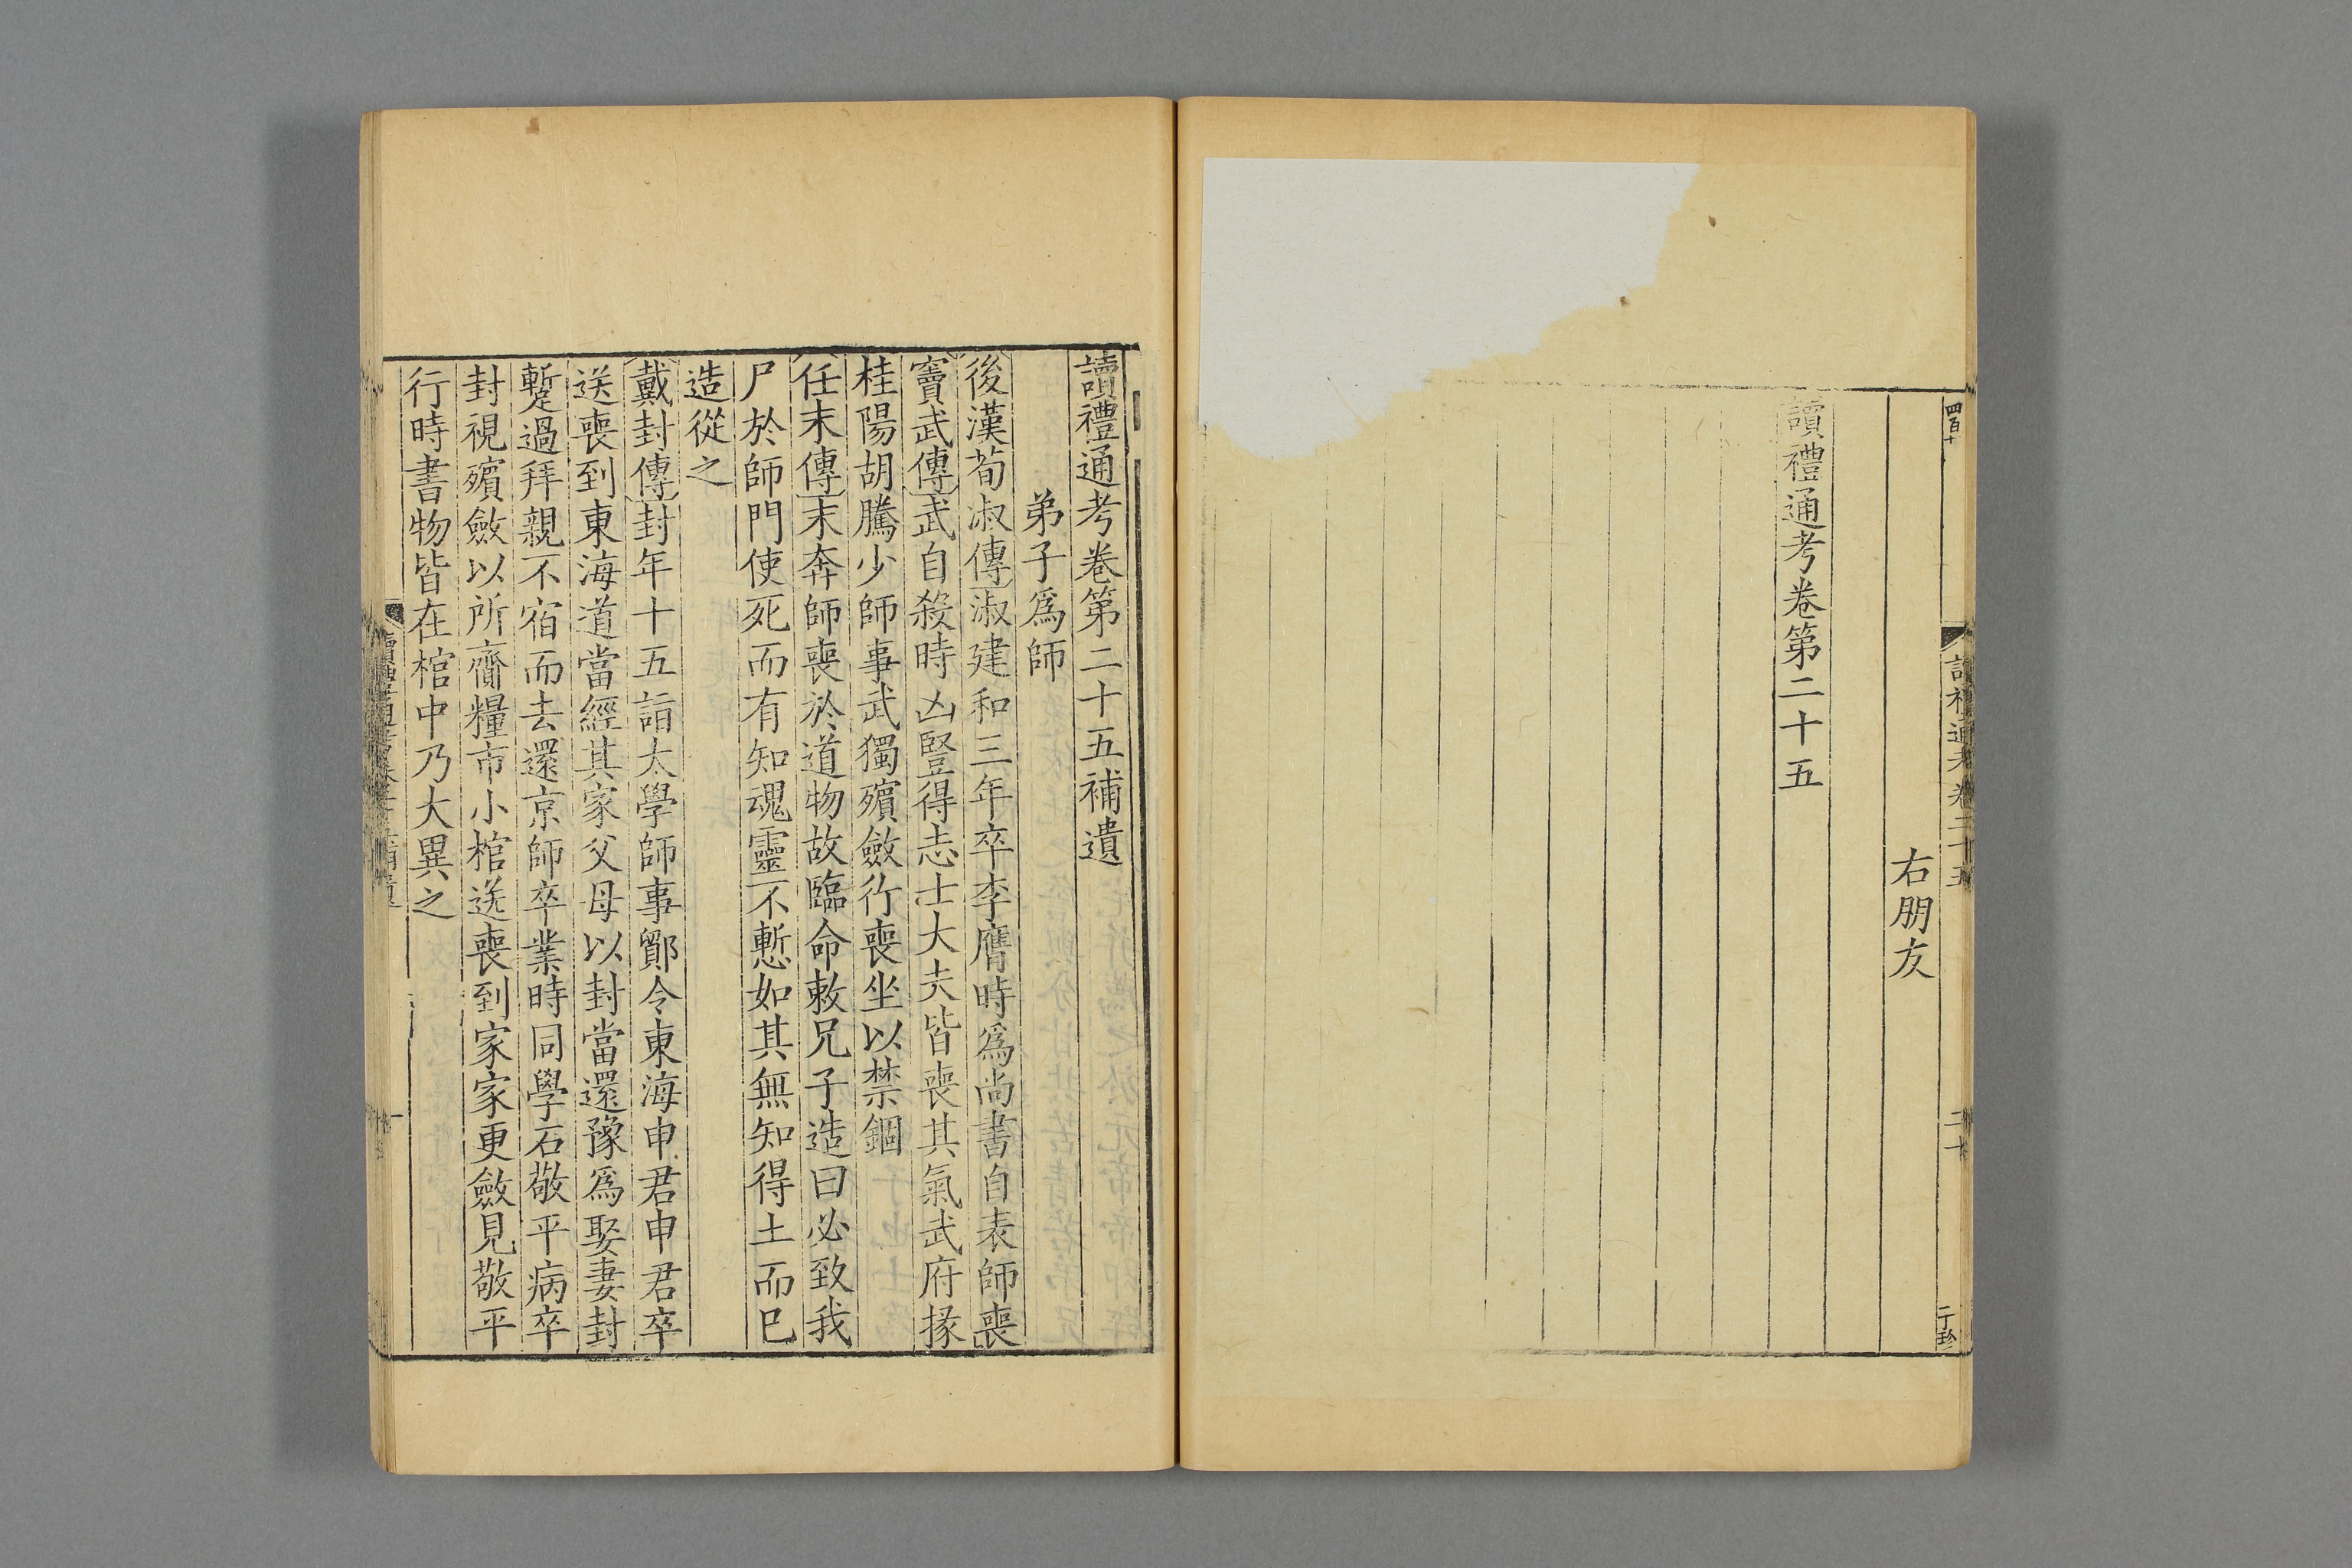 四百十
讀禮通考卷二十五
二十
右朋友
讀禮通考卷第二十五
讀禮通考卷第二十五補遺
弟子爲師
後漢荀淑傳淑建和三年卒李膺時爲尚書自表師喪
竇武傳武自殺時凶豎得志士大夫皆喪其氣武府掾
桂陽胡騰少師事武獨殯斂行喪坐以禁錮
任末傳末奔師喪於道物故臨命敕兄子造曰必致我
尸於師門使死而有知魂靈不慙如其無知得土而已
造從之
戴封傳封年十五詣太學師事鄮令東海申君申君卒
送喪到東海道當經其家父母以封當還豫爲娶妻封
蹔過拜親不宿而去還京師卒業時同學石敬平病卒
封視殯斂以所齎糧市小棺送喪到家家更斂見敬平
行時書物皆在棺中乃大異之
一